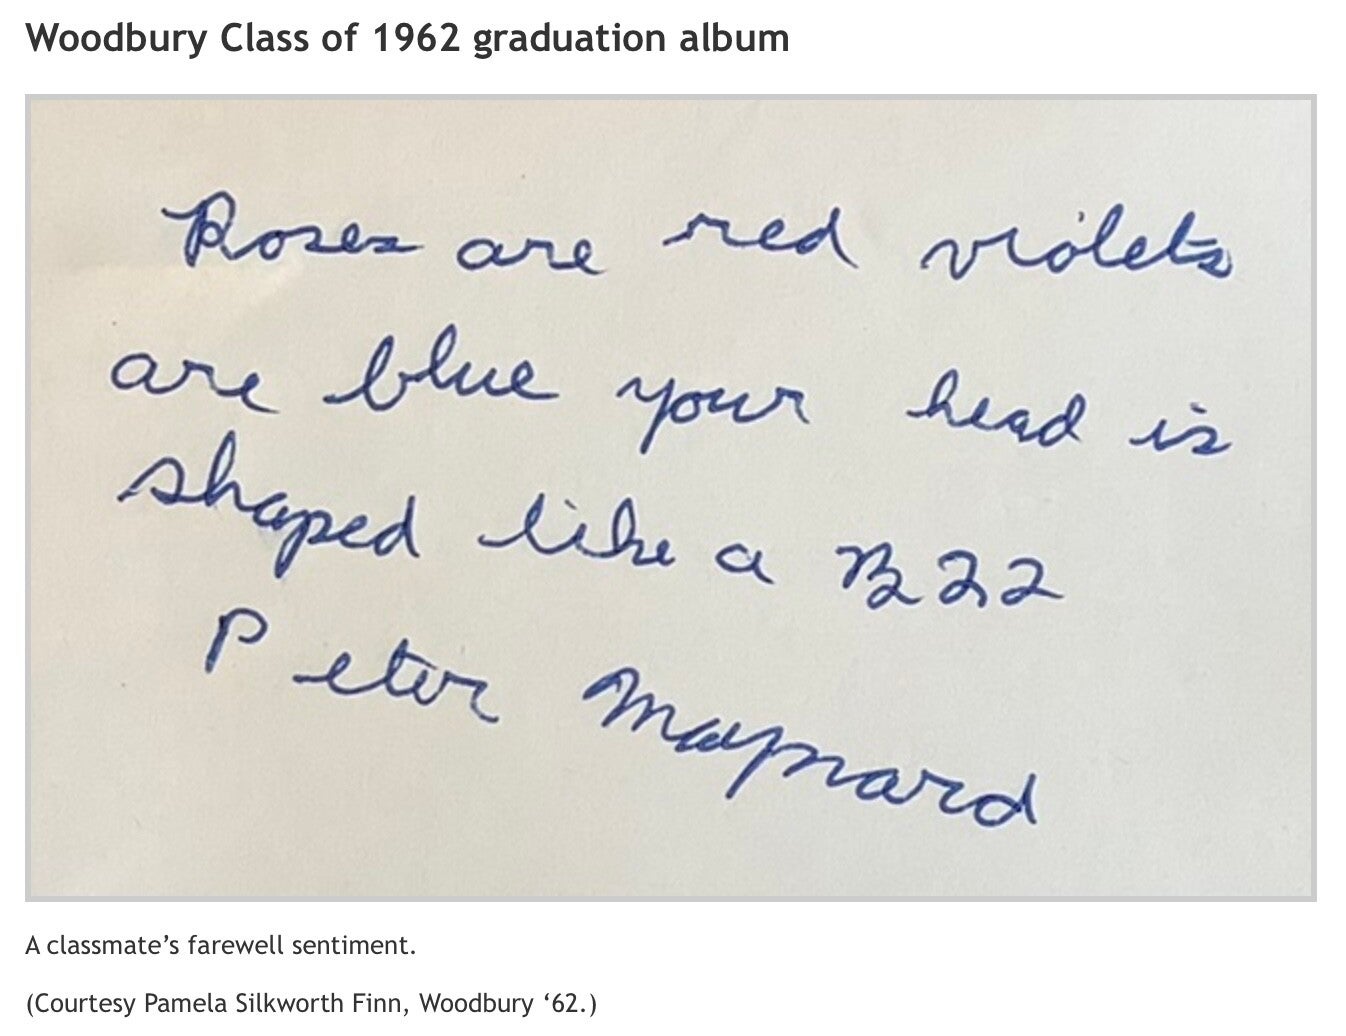 Woodbury Class of 1962 graduation album
Roses are red violets
are blue your head is
shaped like a B22
Peter Maynard
A classmate’s farewell sentiment.
(Courtesy Pamela Silkworth Finn, Woodbury ‘62.)